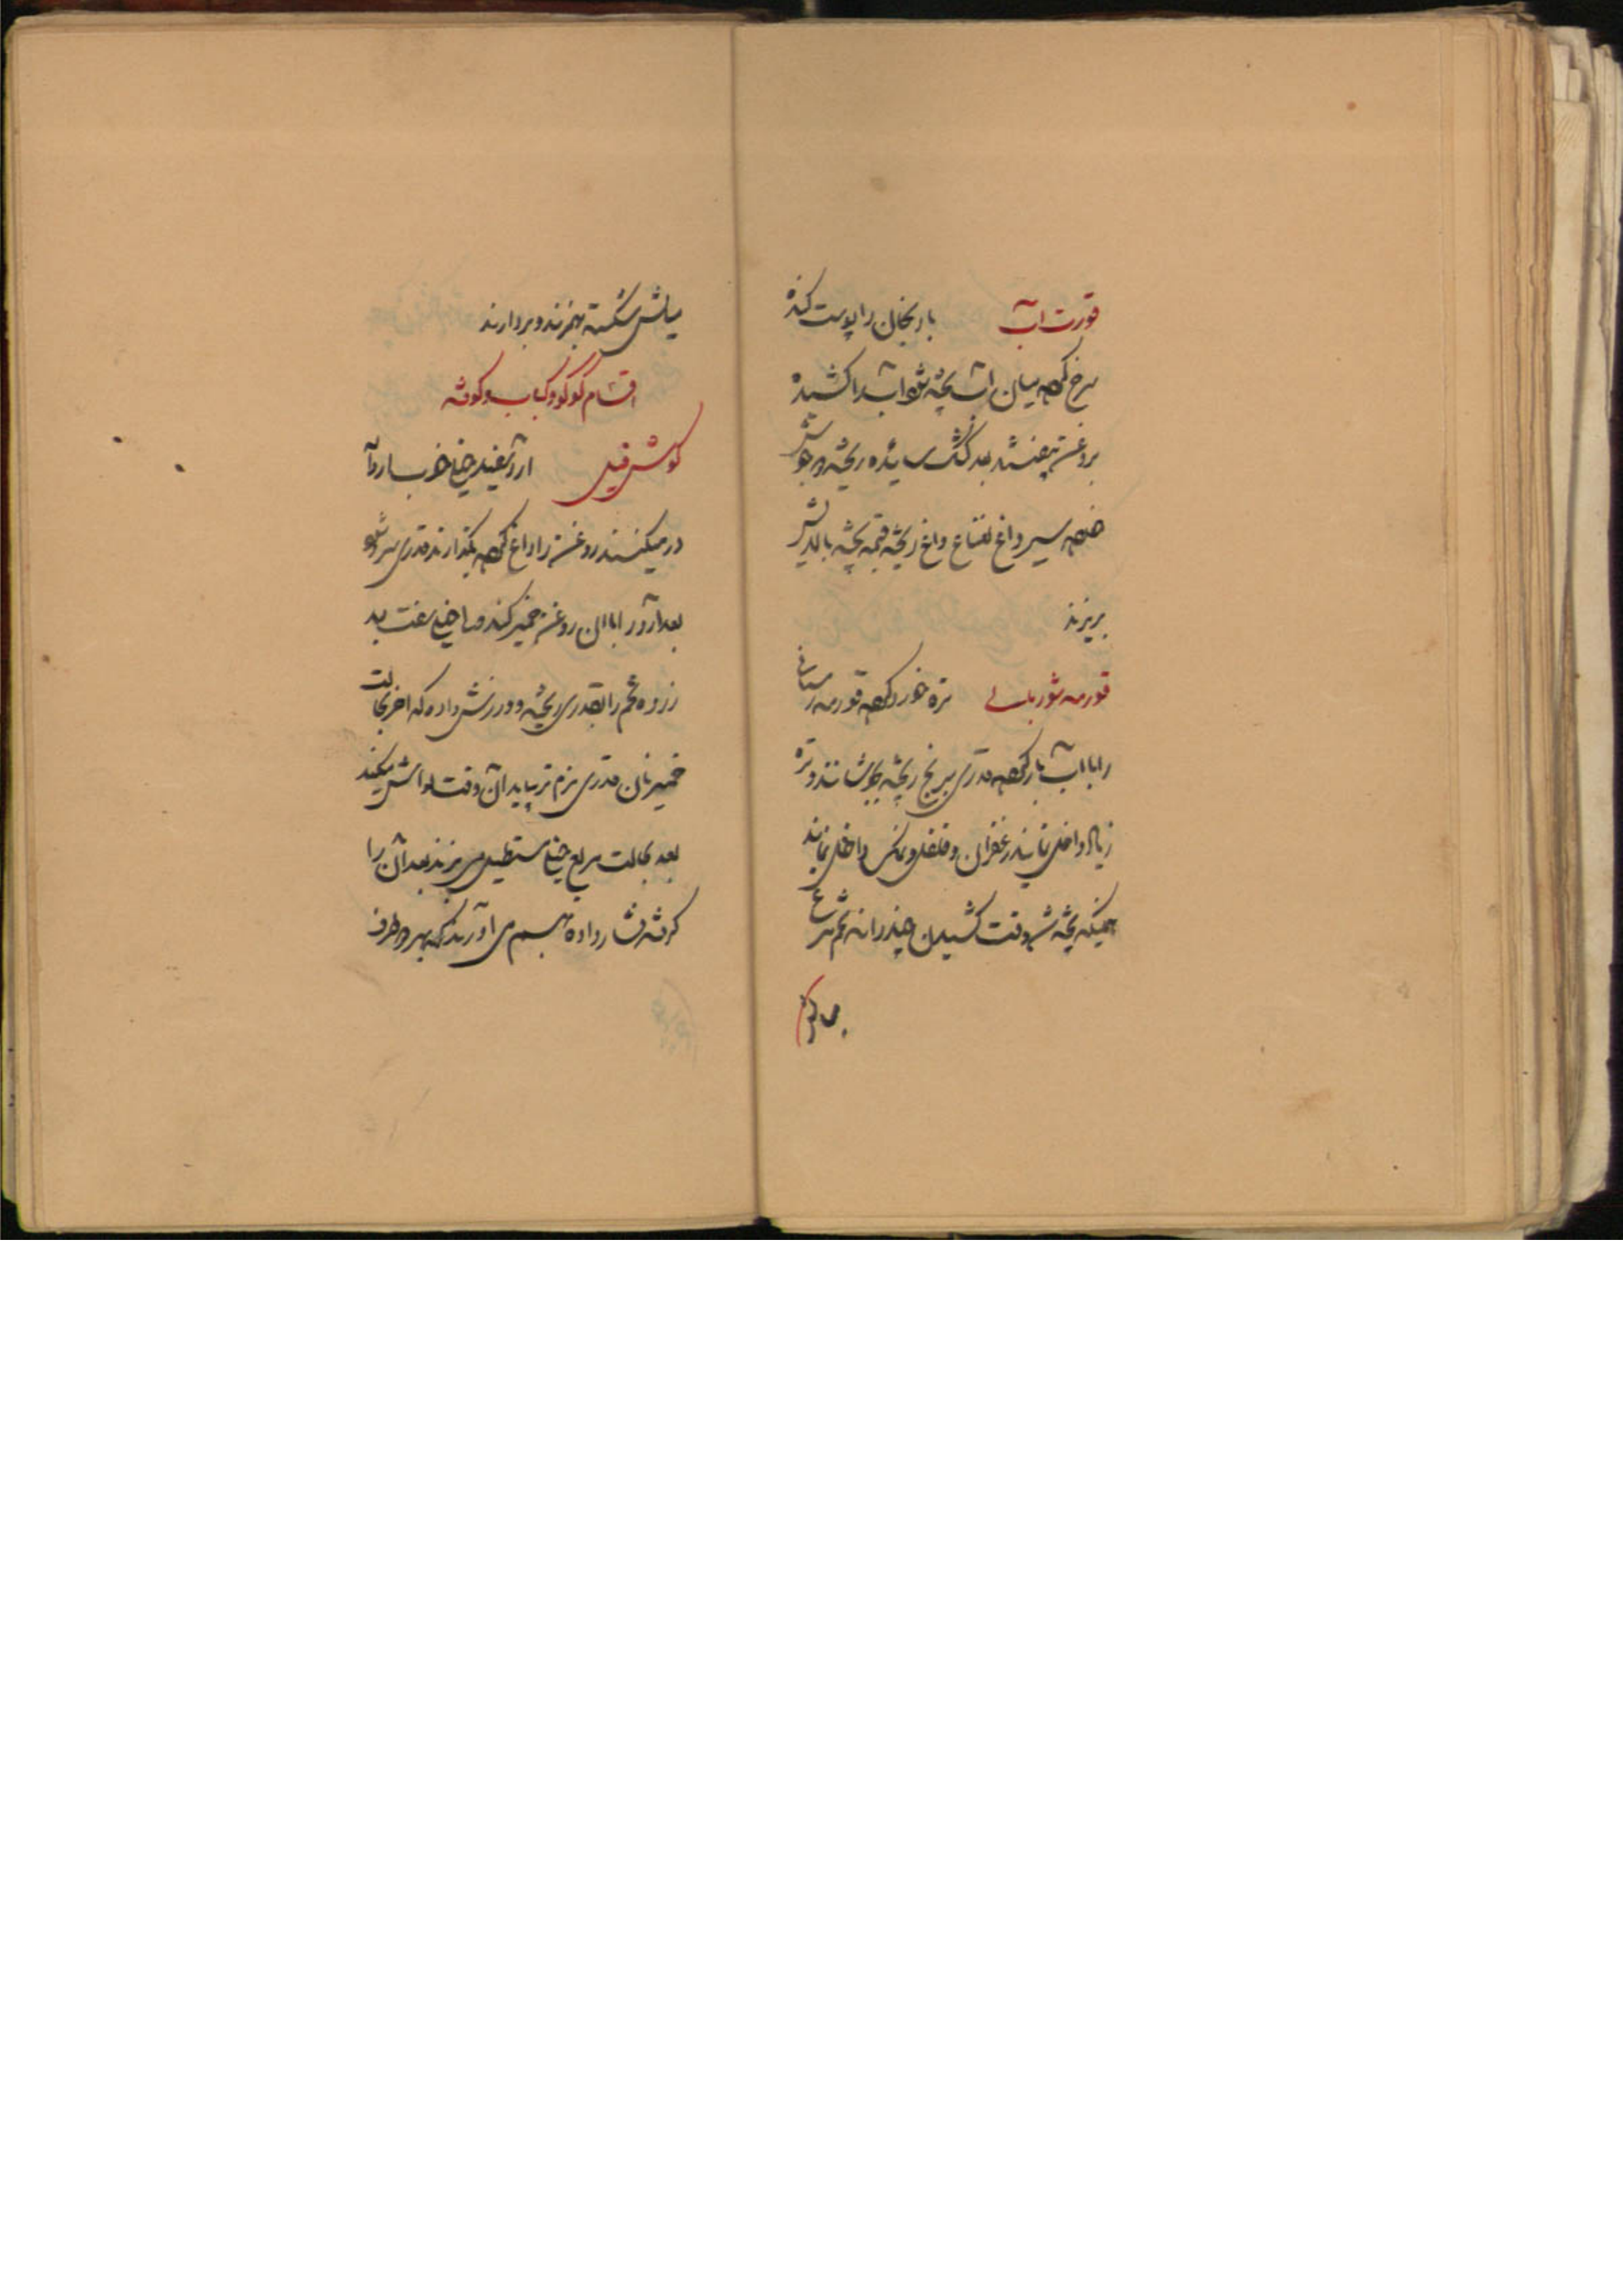 قورت آب بادنجان را پوست کنده
سرخ کرده میان آتش پخته شود آتش را کشیده
بروغن بیفتد بعد کشک سائیده ریخته در جوش
سیر داغ نعناع داغ ریخته قیمه پخته بالایش
بریزند
قورمه شوربائی تره خورد کرده قورمه
را با آب بار کرده قدری برنج ریخته بجوشانند و تره
زیاد داخل نمایند زعفران و فلفل و نمک داخل نمایند
همینکه پخته شد وقت کشیدن چند دانه تخم مرغ
میانش شکسته بهم زنند و بردارند
اقسام کوکو و کباب و کوفته
کوش فیل ارد سفید چنانچه
در میکنند روغن را داغ کرده بگذارند قدری سرد شود
بعد آرد را با آن روغن خمیر کنند
زرده تخم را بقدری ریخته و ورزش داده که آخر بحالت
خمیر نان قدری نرم تر بیاید آن وقت لواش میکنند
بعد بحالت مربع مستطیل می برند بعد آن را
کرفته فشار داده بهم می آورند که بهر دو طرف